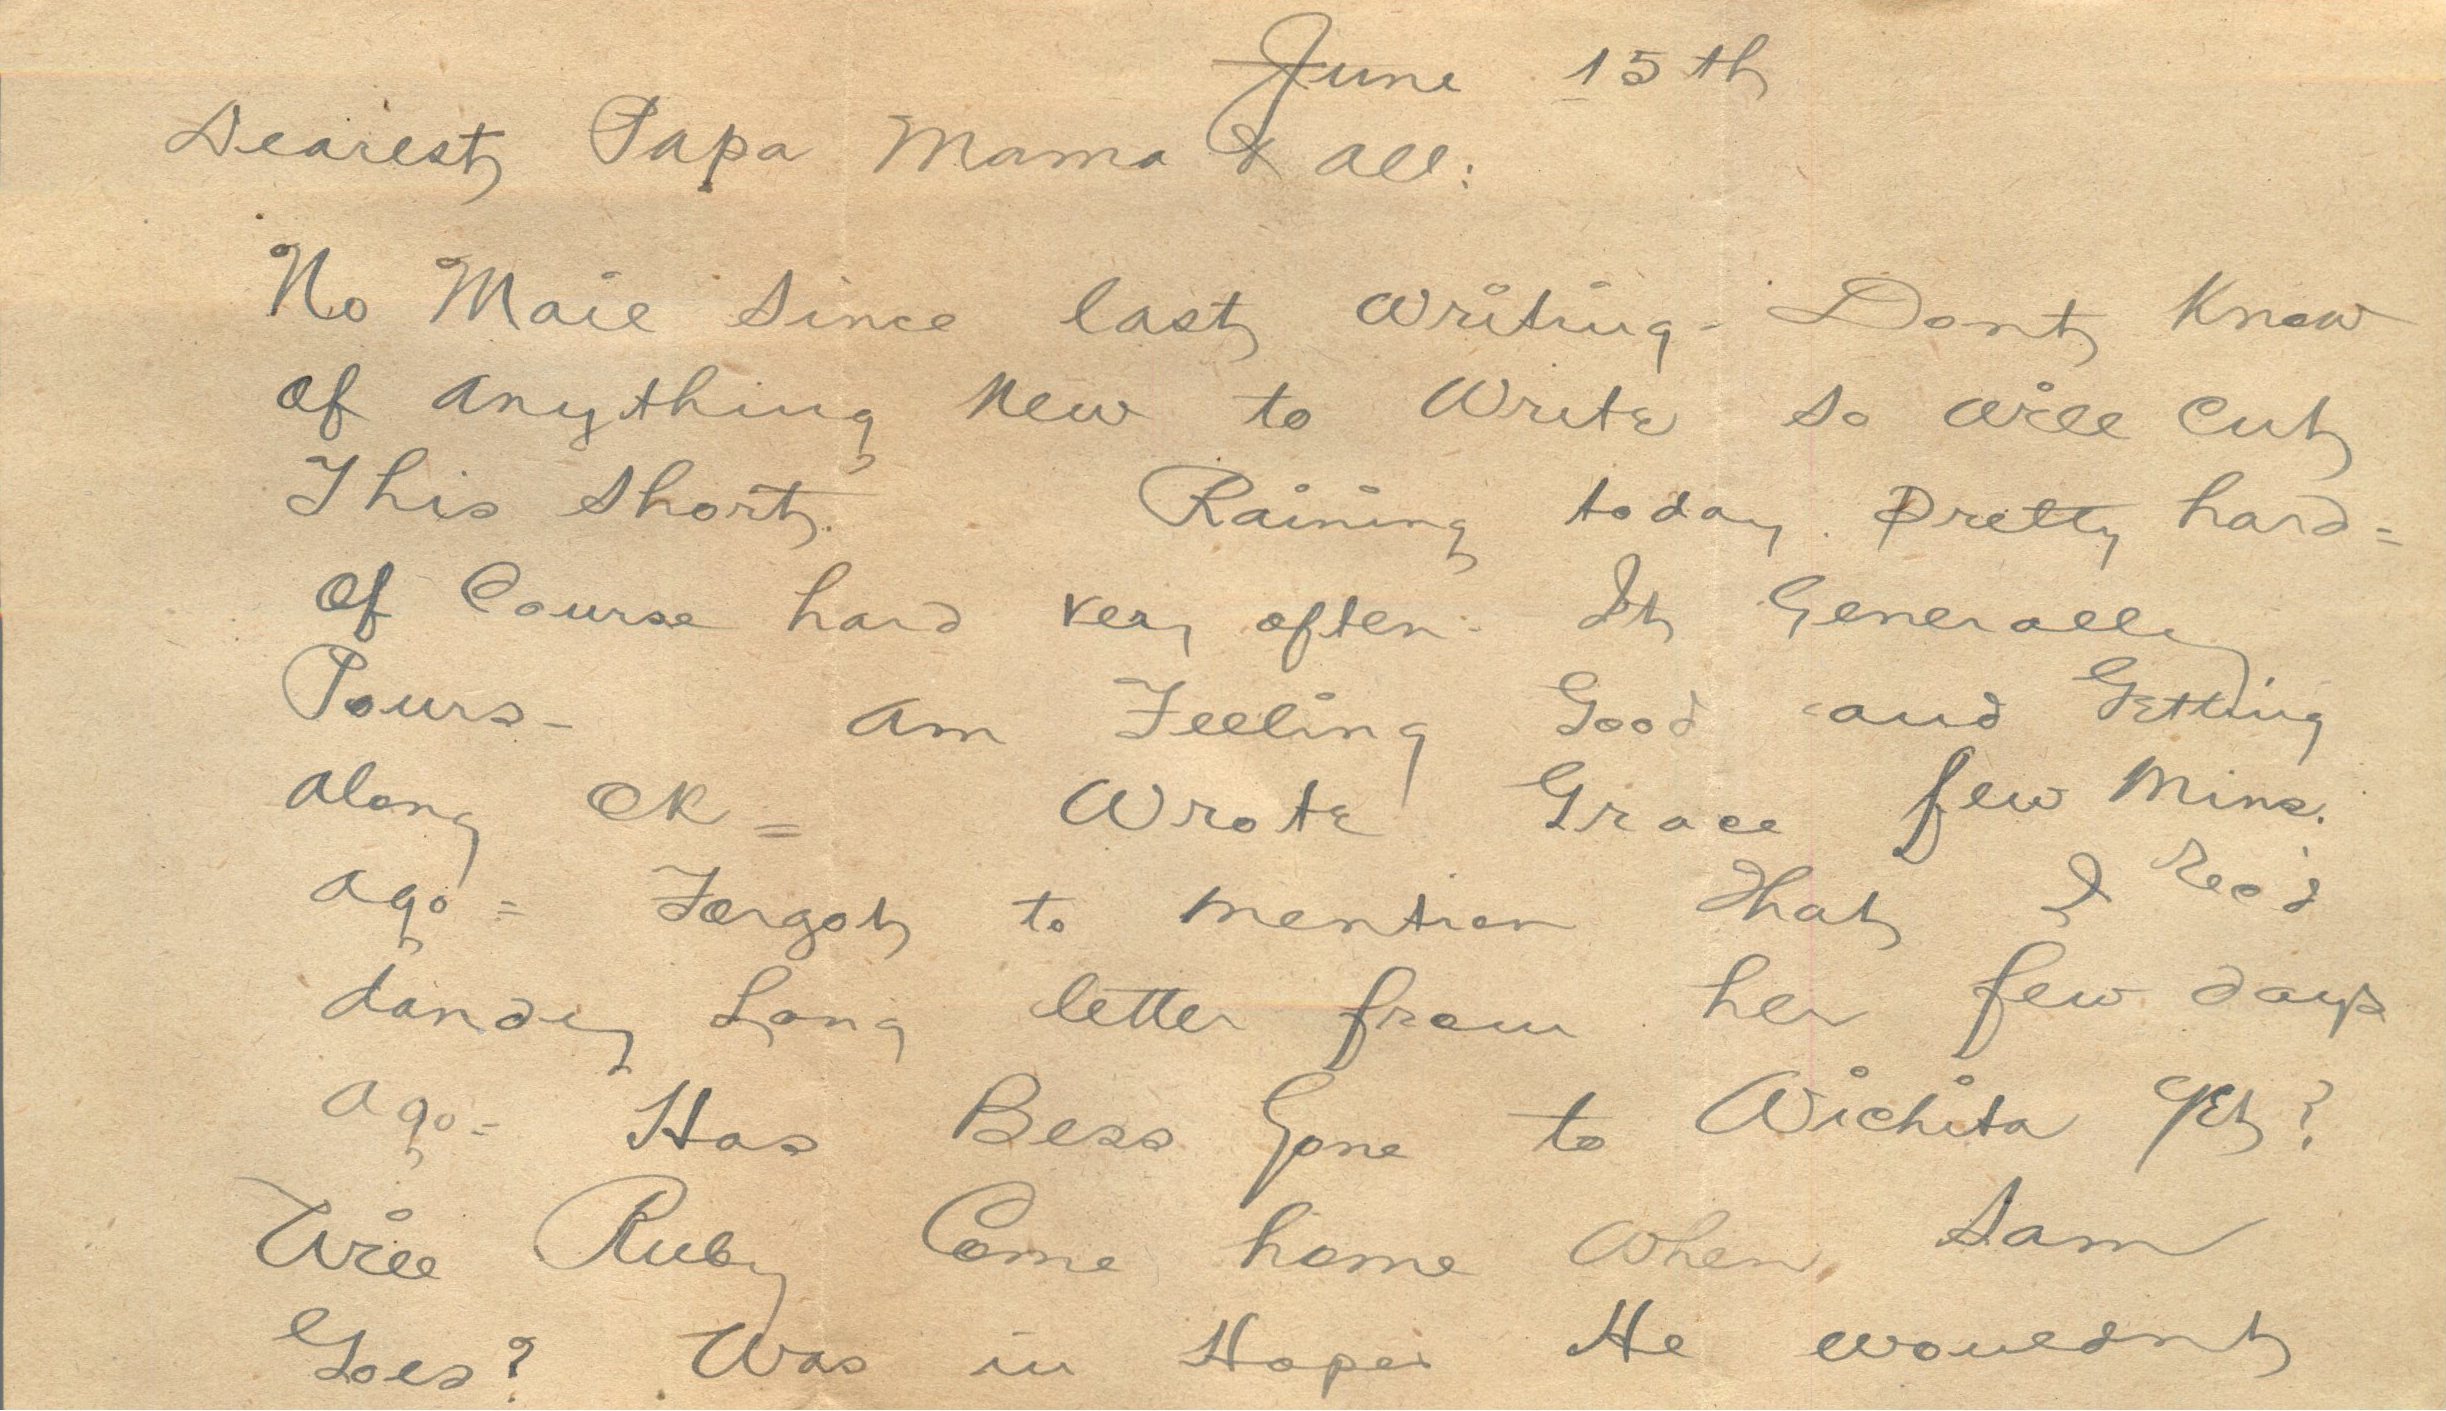 June 15th
Dearest Papa Mama & all:
No Mail since last writing - Dont Know
of anything New to Write so will cut
This short. Raining today. Pretty hard =
of Course hard very often - It Generally
Pours - am Feeling Good and Getting
along OK = Wrote Grace few Mins.
ago = Forgot to mention That I Rec'd
dandy Long letter from her few days
ago - Has Bess Gone to Wichita Yet?
Will Ruby Come home when Sam
Goes? Was in Hopes He wouldnt